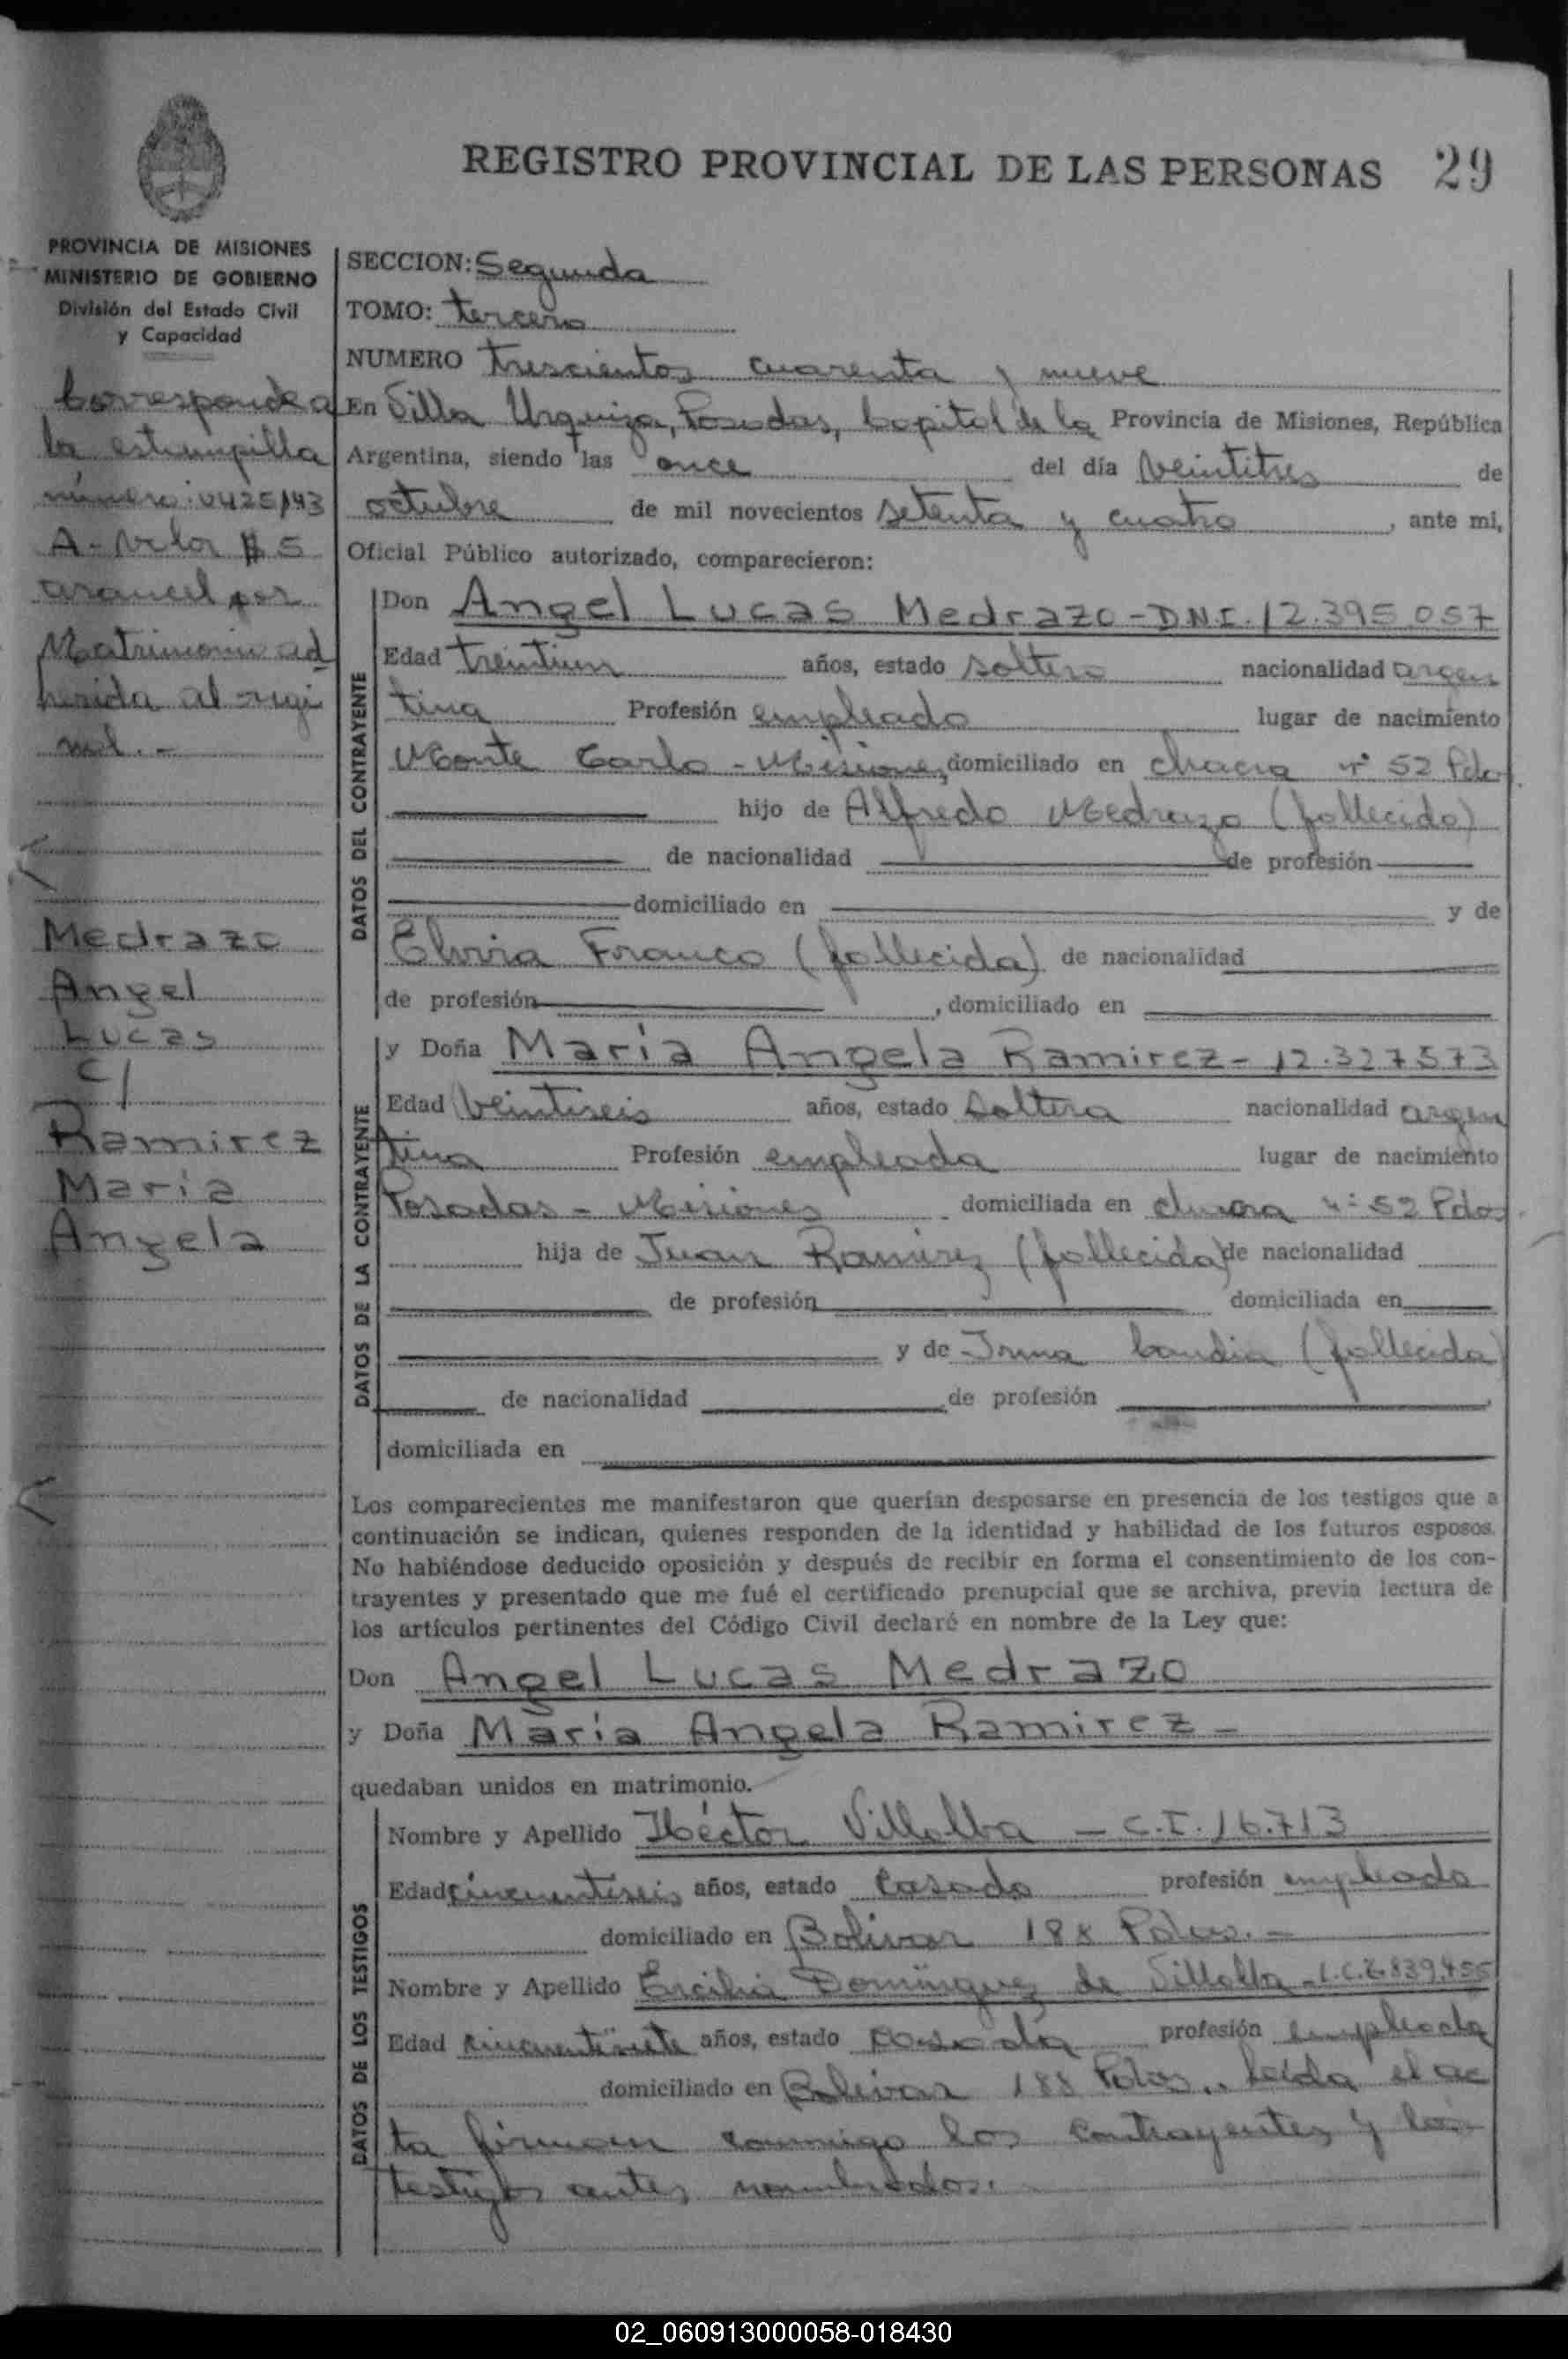 REGISTRO PROVINCIAL DE LAS PERSONAS 29
PROVINCIA DE MISIONES
MINISTERIO DE GOBIERNO
División del Estado Civil
y Capacidad
Corresponde a
la estampilla
número: 0425143
A - Valor $ 5
arancel por
Matrimonio ad
herida al
Medrazo
Angel
Lucas
c/
Ramirez
María
Angela
SECCION: Segunda
TOMO: tercero
NUMERO trescientos cuarenta y nueve
En Villa Urquiza, Posadas, Capital de la Provincia de Misiones, República
Argentina, siendo las once del día veintitres de
octubre de mil novecientos setenta y cuatro, ante mi,
Oficial Público autorizado, comparecieron:
DATOS DEL CONTRAYENTE
Don Angel Lucas Medrazo - D.N.I. 12.395.057
Edad treintiun años, estado soltero nacionalidad argen
tina Profesión empleado lugar de nacimiento
Monte Carlo - Misiones, domiciliado en chacra nº 52 Pdas.
hijo de Alfredo Medrazo (fallecido)
de nacionalidad de profesión
domiciliado en y de
Elvira Franco (fallecida) de nacionalidad
de profesión , domiciliado en
DATOS DE LA CONTRAYENTE
y Doña María Angela Ramirez - 12.327573
Edad veintiseis años, estado soltera nacionalidad argen
tina Profesión empleada lugar de nacimiento
Posadas - Misiones domiciliada en chacra nº 52 Pdas.
hija de Juan Ramirez (fallecido) de nacionalidad
de profesión domiciliada en
y de Irma (fallecida)
de nacionalidad de profesión
domiciliada en
Los comparecientes me manifestaron que querían desposarse en presencia de los testigos que a
continuación se indican, quienes responden de la identidad y habilidad de los futuros esposos.
No habiéndose deducido oposición y después de recibir en forma el consentimiento de los con-
trayentes y presentado que me fué el certificado prenupcial que se archiva, previa lectura de
los artículos pertinentes del Código Civil declaré en nombre de la Ley que:
Don Angel Lucas Medrazo
y Doña María Angela Ramirez -
quedaban unidos en matrimonio.
DATOS DE LOS TESTIGOS
Nombre y Apellido Héctor Villalba - C.I. 16.713
Edad cincuentiseis años, estado casado profesión empleado
domiciliado en Bolivar 188 Pdas. -
Nombre y Apellido Ercilia Domínguez de Villalba - L.C. 2.839.455
Edad cincuentisiete años, estado casada profesión empleada
domiciliado en Bolivar 188 Pdas.. Leída el ac
ta firman conmigo los contrayentes y los
testigos antes nombrados.
02_060913000058-018430